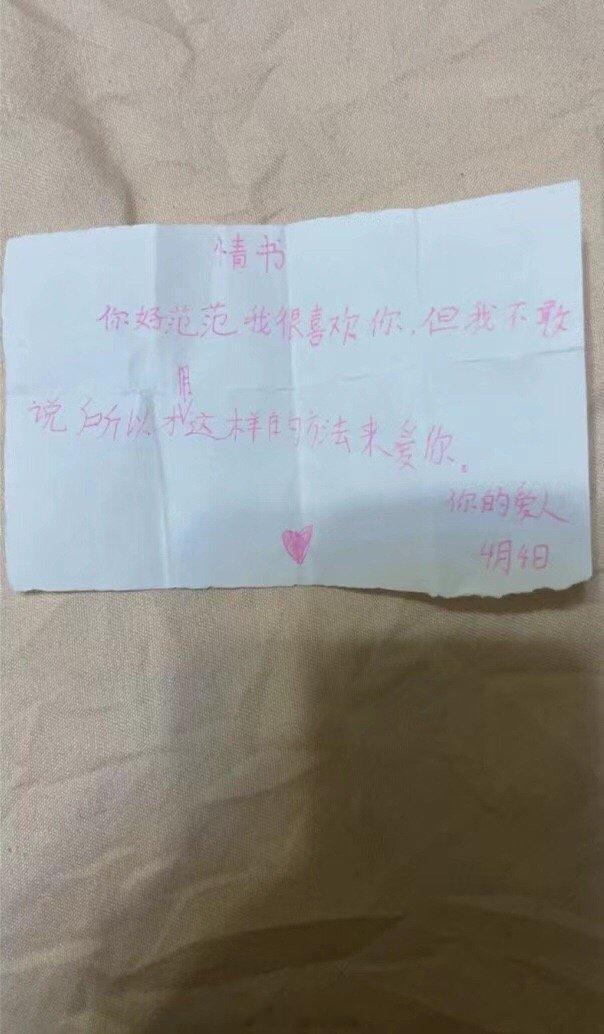 情书
你好范范我很喜欢你,但我不敢
说所以我用这样的方法来爱你。
你的爱人
4月4日